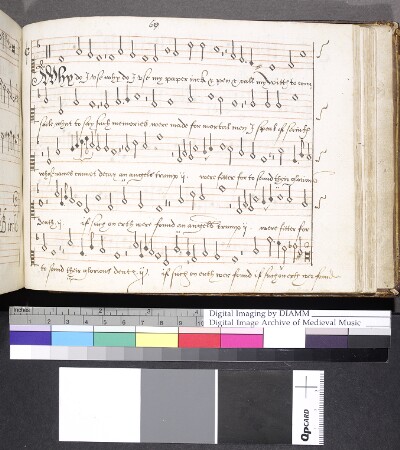 69
Why do I use why do I use my paper inck & pen & call my witts to coun
saile what to say such memories were made for mortal men I speak of saints
whos names cannot decay an angels trump ij. were fitter for to sound their glorious
death ij if such on erth were found an angels trump ij were fitter for
to sound their glorious death ij. if such on erth were found if such on erth wer found
Digital Imaging by DIAMM
Digital Image Archive of Medieval Music
QPCARD